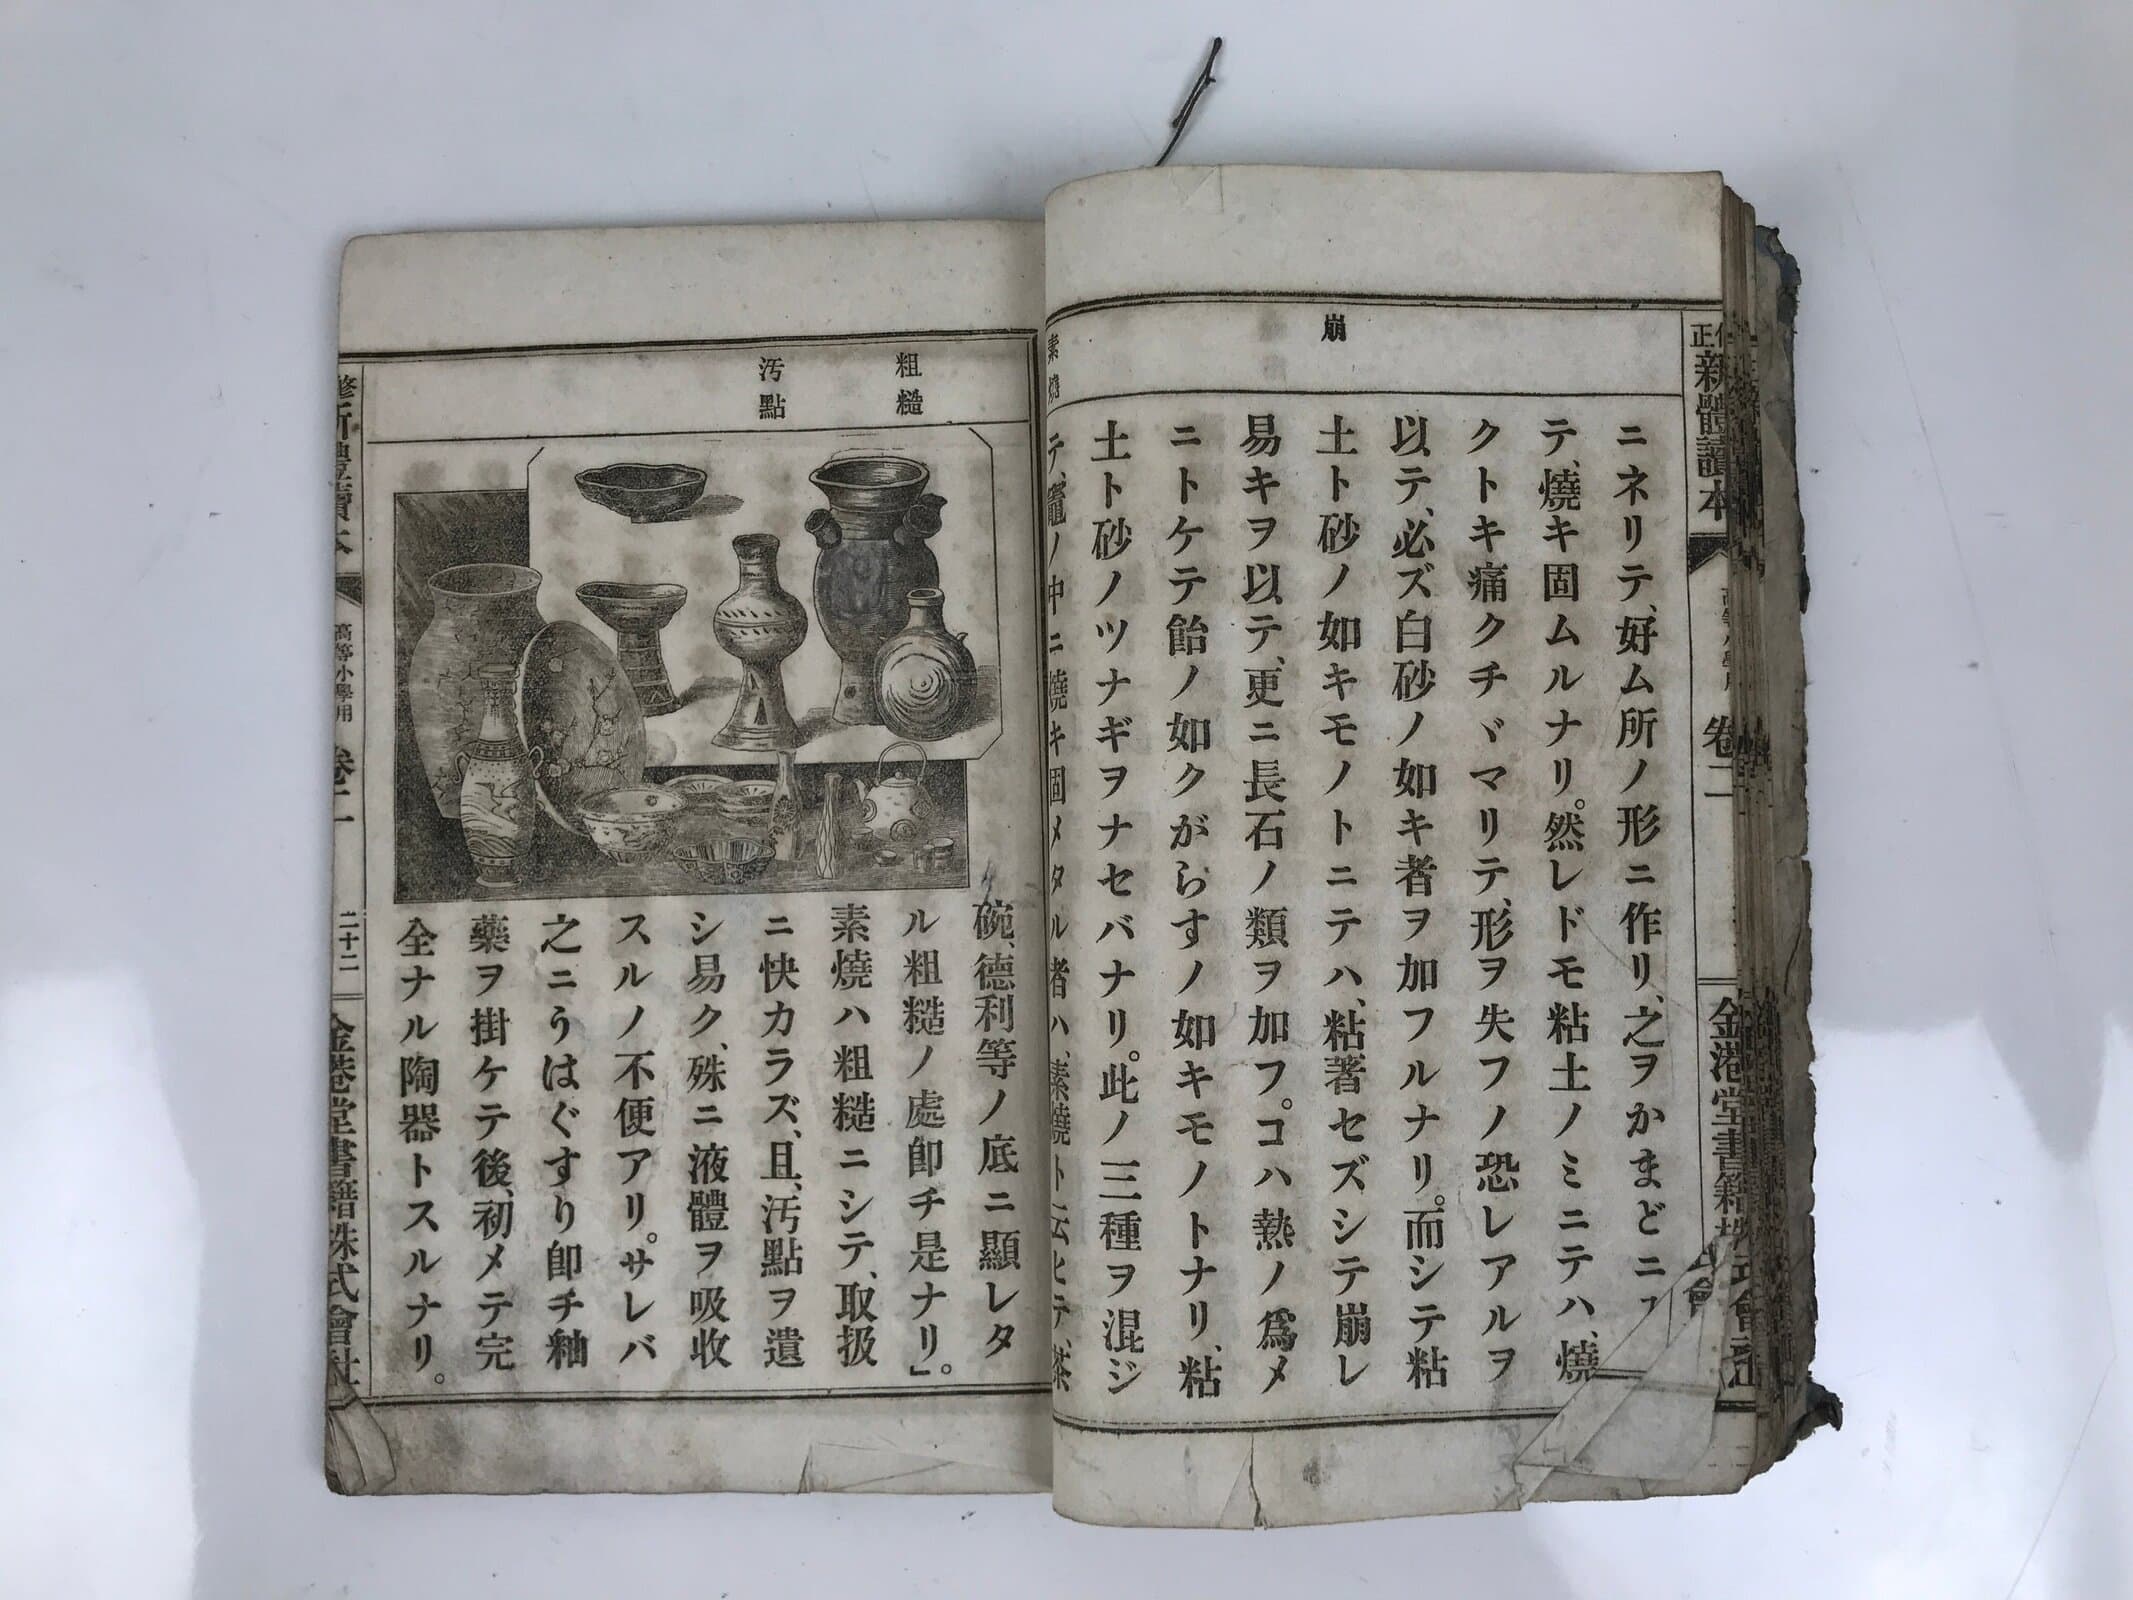 崩
素燒
ニネリテ、好ム所ノ形ニ作リ、之ヲかまどニ
テ、燒キ固ムルナリ。然レドモ粘土ノミニテハ、燒
クトキ痛クチヾマリテ、形ヲ失フノ恐レアルヲ
以テ、必ズ白砂ノ如キ者ヲ加フルナリ。而シテ粘
土ト砂ノ如キモノトニテハ、粘著セズシテ崩レ
易キヲ以テ、更ニ長石ノ類ヲ加フ。コハ熱ノ爲メ
ニトケテ飴ノ如クがらすノ如キモノトナリ、粘
土ト砂ノツナギヲナセバナリ。此ノ三種ヲ混ジ
テ、竈ノ中ニ燒キ固メタル者ハ、素燒ト云ヒテ、茶
新體讀本
卷二
金港堂書籍株式會社
粗糙
汚點
碗、德利等ノ底ニ顯レタ
ル粗糙ノ處卽チ是ナリ」。
素燒ハ粗糙ニシテ、取扱
ニ快カラズ、且、汚點ヲ遺
シ易ク、殊ニ液體ヲ吸收
スルノ不便アリ。サレバ
之ニうはぐすり卽チ釉
藥ヲ掛ケテ後、初メテ完
全ナル陶器トスルナリ。
高等小學用
二十二
金港堂書籍株式會社